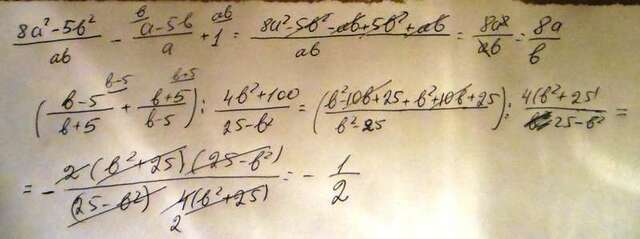 (8a² - 5b²)/ab - (a - 5b)/a + 1 = (8a² - 5b² - ab + 5b² + ab)/ab = 8a²/ab = 8a/b
((b-5)/(b+5) + (b+5)/(b-5)) : (4b²+100)/(25-b²) = ((b²-10b+25+b²+10b+25)/(b²-25)) : 4(b²+25)/(25-b²) =
= - 2(b²+25)(25-b²)/((25-b²) 4(b²+25)) = - 1/2